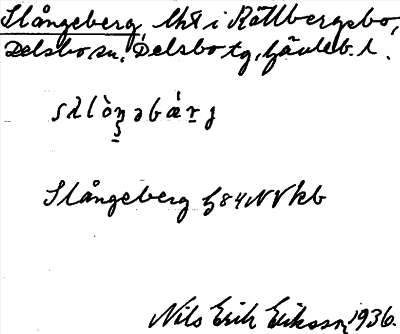 Slångeberg, lht i Källbergsbo,
Delsbo sn, Delsbo tg, Gävleb. l.
Slångeberg G84NVkb
Nils Erik Eriksson, 1936.